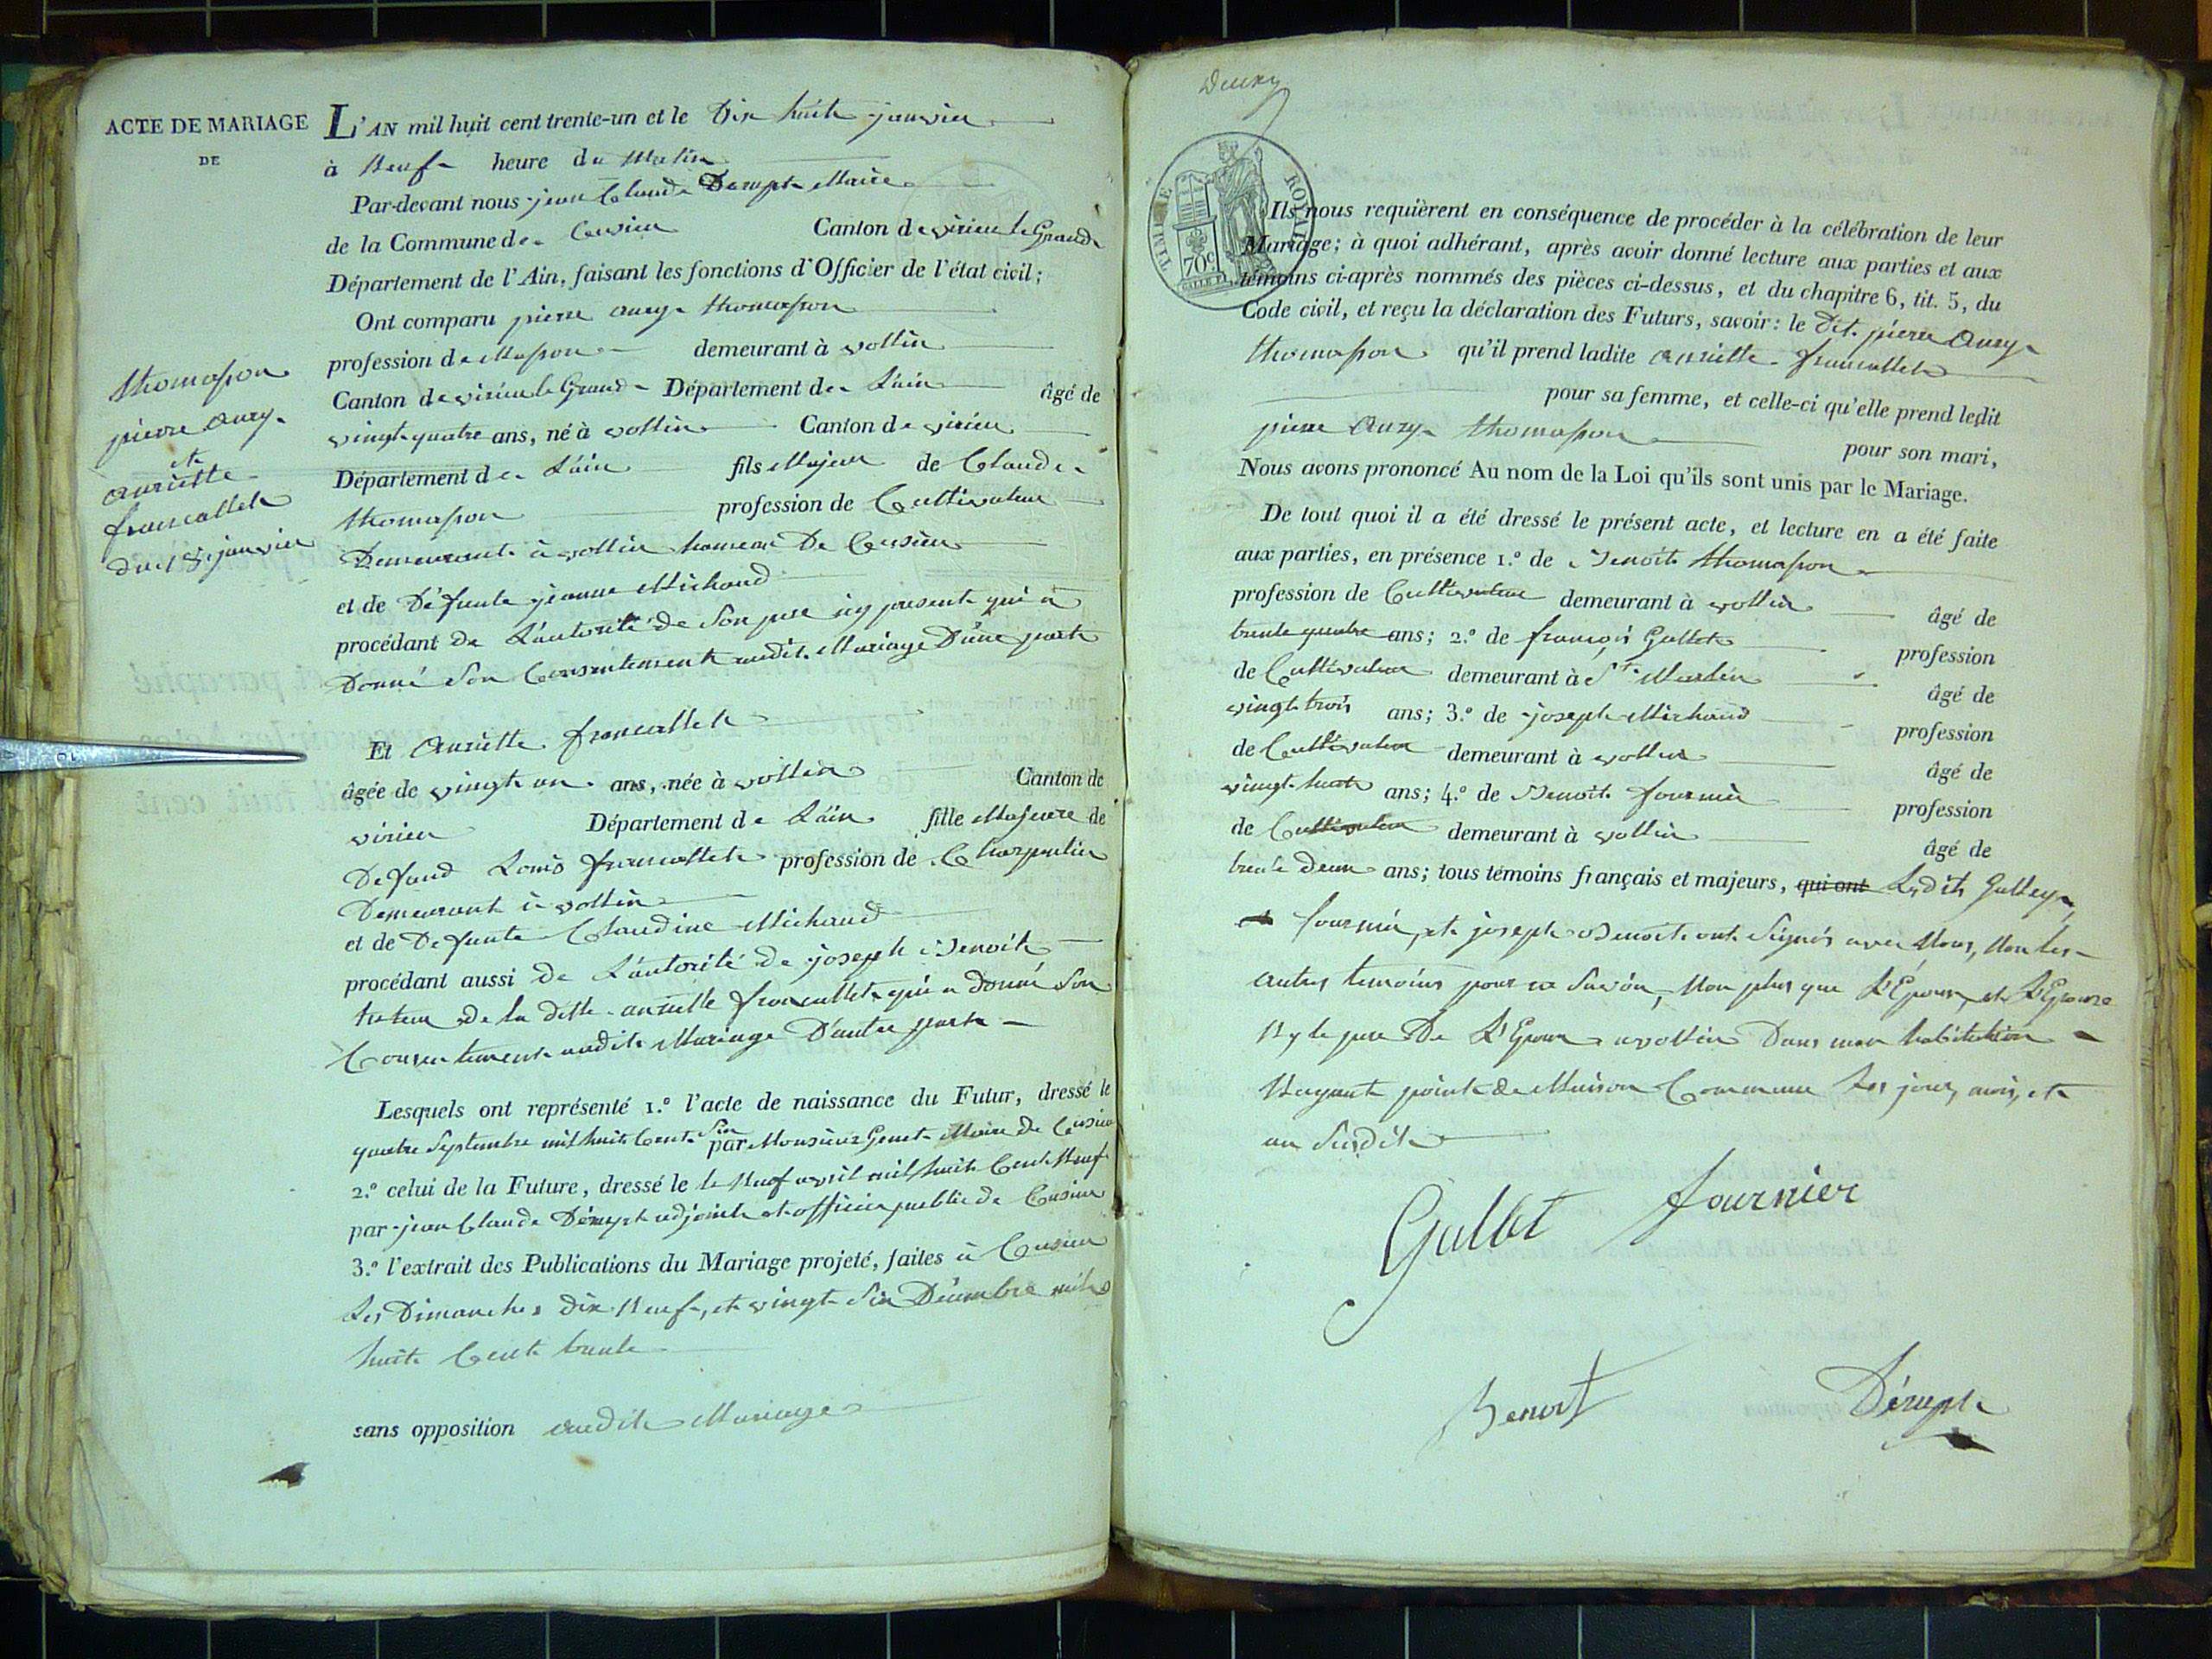 ACTE DE MARIAGE
DE
thomasson
pierre auxy
et
anriette
francallet
du 18 janvier
L'AN mil huit cent trente-un et le Dix huit janvier
à Neuf heure du Matin
Par-devant nous jean Claude Dérupt Maire
de la Commune de Ceusieu Canton de virieu le Grand
Département de l'Ain, faisant les fonctions d'Officier de l'état civil;
Ont comparu pierre thomasson
profession de Masson demeurant à vollien
Canton de virieu le Grand Département de L'ain âgé de
vingt quatre ans, né à vollien Canton de virieu
Département de L'ain fils Majeur de Claude
thomasson profession de Cultivateur
Demeurant à vollien hameau De Ceusieu
et de Défunte jeanne Michaud
procédant de L'autorité de Son pere icy present qui a
Donné Son Consentement audit Mariage D'une part
Et anriette francallet
âgée de vingt un ans, née à vollien Canton de
virieu Département de L'ain fille Majeure de
Defund Louis francallet profession de Charpentier
Demeurant à vollien
et de Defunte Claudine Michaud
procédant aussi de L'autorité de joseph Benoit
tuteur de la ditte anriette francallet qui a donné Son
Consentement audit Mariage D'autre part
Lesquels ont représenté 1.º l'acte de naissance du Futur, dressé le
quatre Septembre mil huit Cent Six par Monsieur Genet Maire de Ceusieu
2.º celui de la Future, dressé le le Neuf avril mil huit Cent Neuf
par jean Claude Dérupt adjoint et officier public de Ceusieu
3.º l'extrait des Publications du Mariage projeté, faites à Ceusieu
Les Dimanches dix Neuf, et vingt Six Décembre mil
huit Cent trente
sans opposition audit Mariage
TIMBRE ROYAL
70c
Ils nous requièrent en conséquence de procéder à la célébration de leur
Mariage; à quoi adhérant, après avoir donné lecture aux parties et aux
témoins ci-après nommés des pièces ci-dessus, et du chapitre 6, tit. 5, du
Code civil, et reçu la déclaration des Futurs, savoir: le Dit pierre auxy
thomasson qu'il prend ladite anriette francallet
pour sa femme, et celle-ci qu'elle prend ledit
pierre auxy thomasson pour son mari,
Nous avons prononcé Au nom de la Loi qu'ils sont unis par le Mariage.
De tout quoi il a été dressé le présent acte, et lecture en a été faite
aux parties, en présence 1.º de Benoit thomasson
profession de Cultivateur demeurant à vollien âgé de
trente quatre ans; 2.º de françois Gallet profession
de Cultivateur demeurant à St Martin âgé de
vingt trois ans; 3.º de joseph Michaud profession
de Cultivateur demeurant à vollien âgé de
vingt huit ans; 4.º de Benoit fournier profession
de Cultivateur demeurant à vollien âgé de
trente Deux ans; tous témoins français et majeurs, qui ont Lesdits Gallet,
et fournier, et joseph Benoit ont Signés avec Nous, Non les
autres temoins pour ne Savoir, Non plus que L'Epoux, et L'Epouse
Ny le pere De L'Epoux a vollien Dans mon habitation
Nayant point de Maison Commune Les jour, mois, et
an Susdit
Gallet fournier
Benoit Dérupt